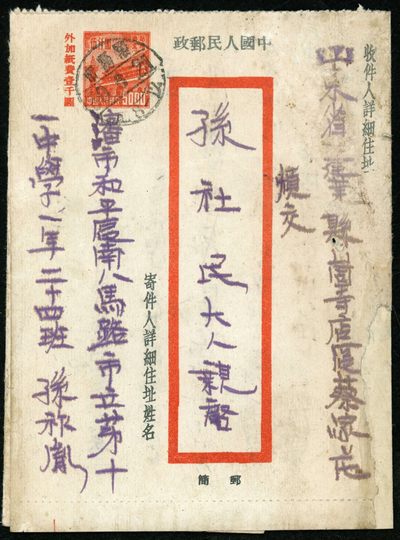 中國人民郵政
收件人詳細住址
縣崮寺店區蔡家莊
煩交
孫社民大人親啓
郵簡
寄件人詳細住址姓名
瀋市和平區南八馬路市立第十
一中學一年二十四班 孫祚胤
外加紙費壹千圓
5000